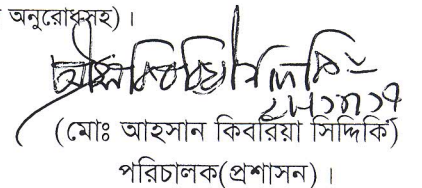 অনুরোধসহ)।
(মোঃ আহসান কিবরিয়া সিদ্দিকি)
পরিচালক(প্রশাসন)।